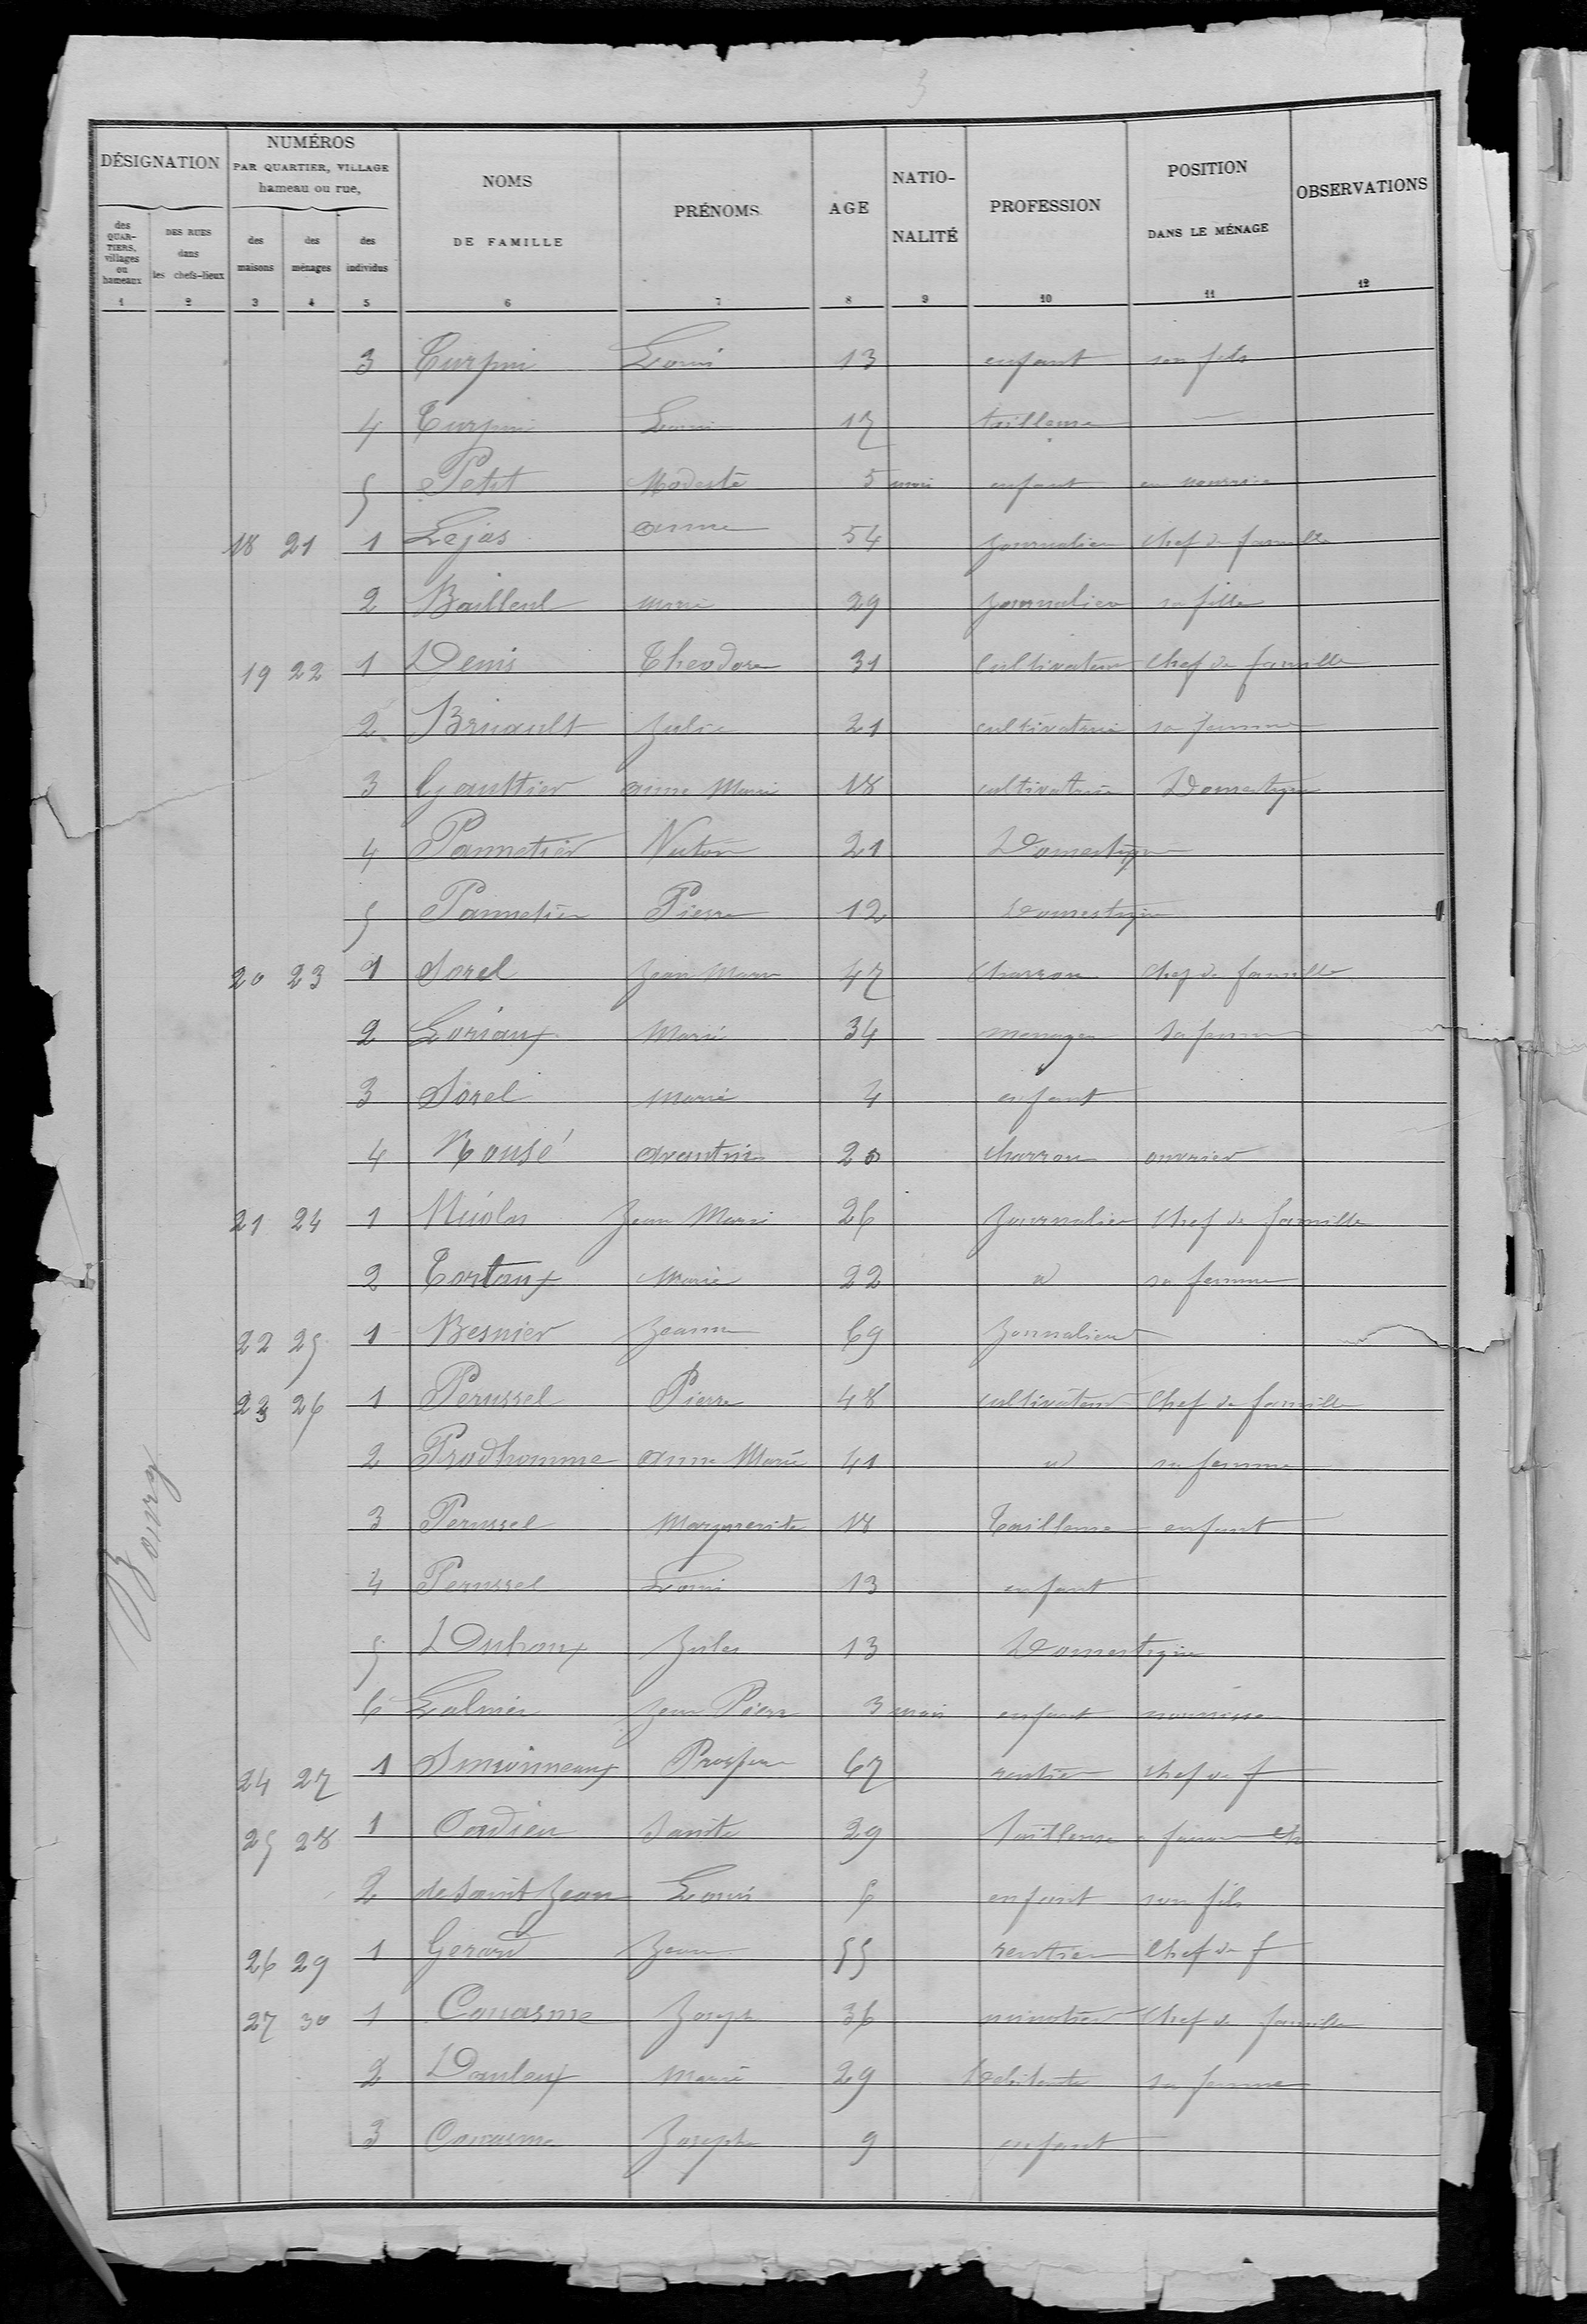 3
DÉSIGNATION
NUMÉROS
PAR QUARTIER, VILLAGE
hameau ou rue,
NOMS
DE FAMILLE
PRÉNOMS
AGE
NATIO-
NALITÉ
PROFESSION
POSITION
DANS LE MÉNAGE
OBSERVATIONS
des
QUAR-
TIERS,
villages
ou
hameaux
DES RUES
dans
les chefs-lieux
des
maisons
des
ménages
des
individus
1 2 3 4 5 6 7 8 9 10 11 12
Bourg
3 Turpin Louis 13 enfant son fils
4 Turpin 17 tailleuse
5 Petit Modeste 5 mois enfant en nourrice
18 21 1 Lejas anne 54 journaliere chef de famille
2 Bailleul marie 29 journaliere sa fille
19 22 1 Denis Theodore 31 Cultivateur chef de famille
2 Bruault Julie 21 cultivatrice sa femme
3 Gauttier anne Marie 18 cultivatrice Domestique
4 Pannetier Victor 21 Domestique
5 Pannetier Pierre 12 Domestique
20 23 1 Sorel Jean Marie 47 charron chef de famille
2 Loriaux Marie 34 menagere sa femme
3 Sorel Marie 4 enfant
4 20 charron ouvrier
21 24 1 Nicolas Jean Marie 26 journalier chef de famille
2 Tortoux Marie 22 d sa femme
22 25 1 Besnier Jeanne 69 Journaliere
23 26 1 Perussel Pierre 48 cultivateur Chef de famille
2 Prodhomme anne Marie 41 d sa femme
3 Perussel Marguerite 18 Tailleuse enfant
4 Perussel Louis 13 enfant
5 Jules 13 Domestique
6 Jean Pierre 3 mois enfant
24 27 1 Simonneaux Prosper 67 rentier chef de f
25 28 1 Sainte 29 Tailleuse
2 de Saint Jean Louis 6 enfant son fils
26 29 1 Gerard Jean 55 rentier Chef de f
27 30 1 Couasme Joseph 36 minotier Chef de famille
2 Marie 29 Debitante sa femme
3 Couasme Joseph 9 enfant